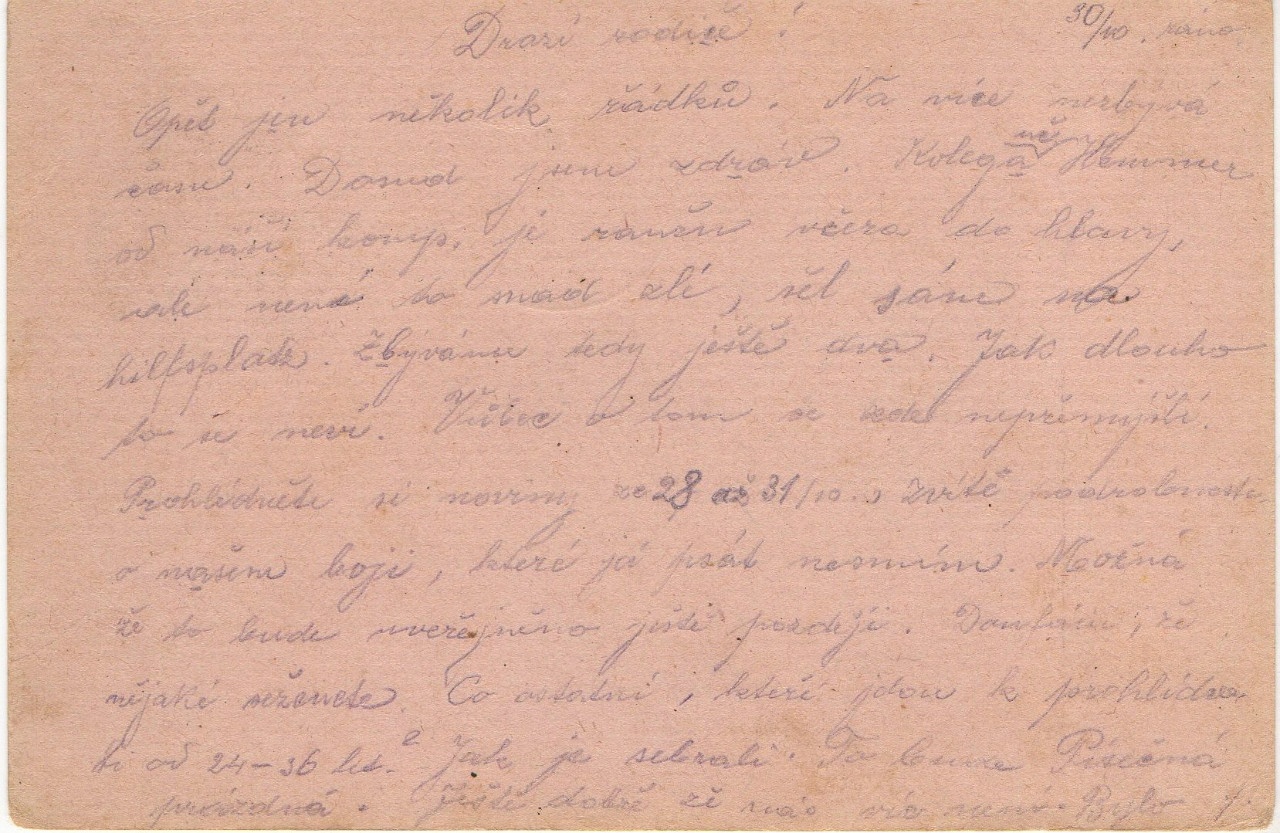 Drazí rodiče! 30/10. ráno.
Opět jen několik řádků. Na více nezbývá
času. Dosud jsem zdráv. Kolega něj Hammer
od naší komp. je raněn včera do hlavy,
ale není to snad zlé, šel sám na
hilfsplatz. Zbýváme tedy ještě dva. Jak dlouho
to se neví. Vůbec o tom se zde nepřemýšlí.
Prohlédněte si noviny ze 28 až 31/10. zvítě podrobnosti
o našem boji, které já psát nesmím. Možná
že to bude uveřejněno ještě později. Doufám, že
nějaké seženete. Co ostatní, kteří jdou k prohlídce
ti od 24-36 let? Jak je sebrali. To bude Písečná
prázdná. Ještě dobře že nás víc není. Bylo